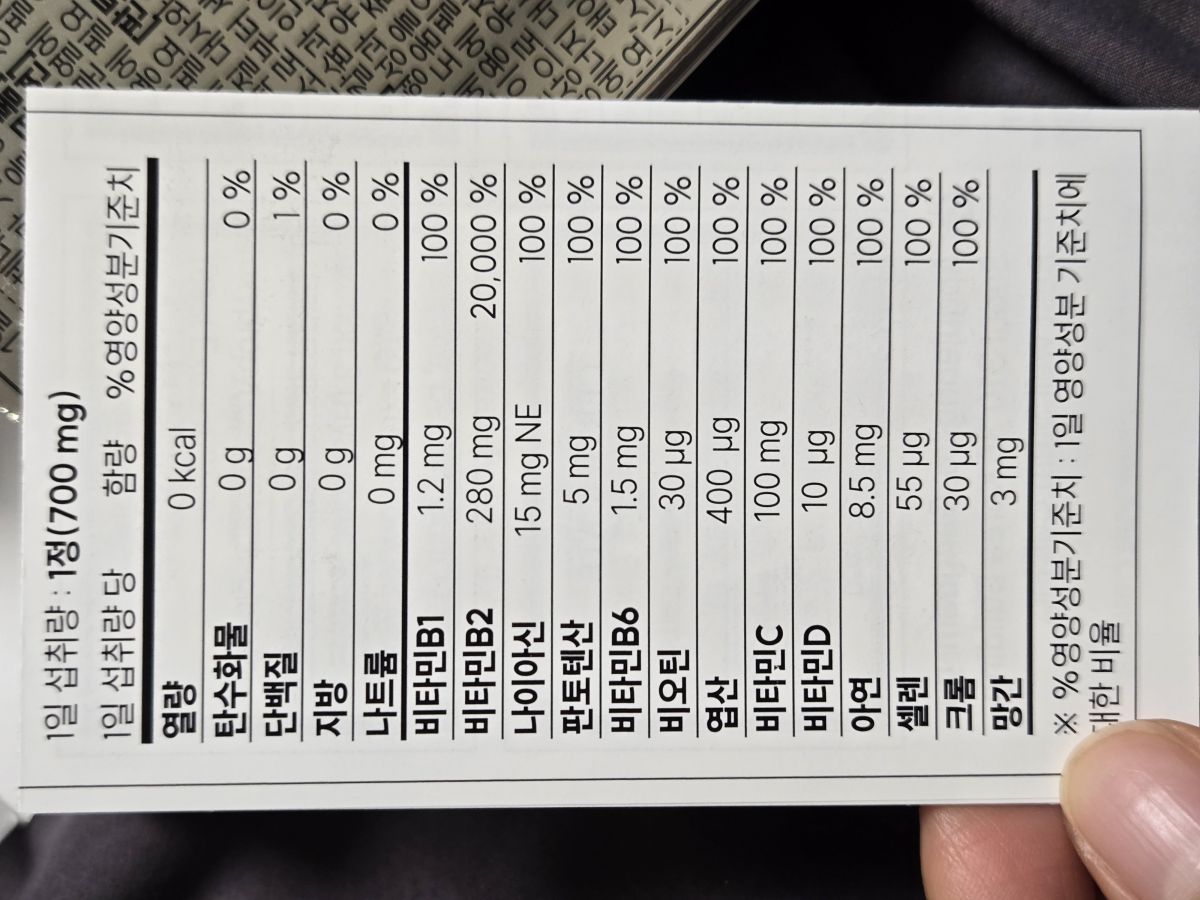 1일 섭취량 : 1정(700 mg)
1일 섭취량 당 함량 %영양성분기준치
열량 0 kcal
탄수화물 0 g 0 %
단백질 0 g 1 %
지방 0 g 0 %
나트륨 0 mg 0 %
비타민B1 1.2 mg 100 %
비타민B2 280 mg 20,000 %
나이아신 15 mg NE 100 %
판토텐산 5 mg 100 %
비타민B6 1.5 mg 100 %
비오틴 30 µg 100 %
엽산 400 µg 100 %
비타민C 100 mg 100 %
비타민D 10 µg 100 %
아연 8.5 mg 100 %
셀렌 55 µg 100 %
크롬 30 µg 100 %
망간 3 mg
※ %영양성분기준치 : 1일 영양성분 기준치에
대한 비율